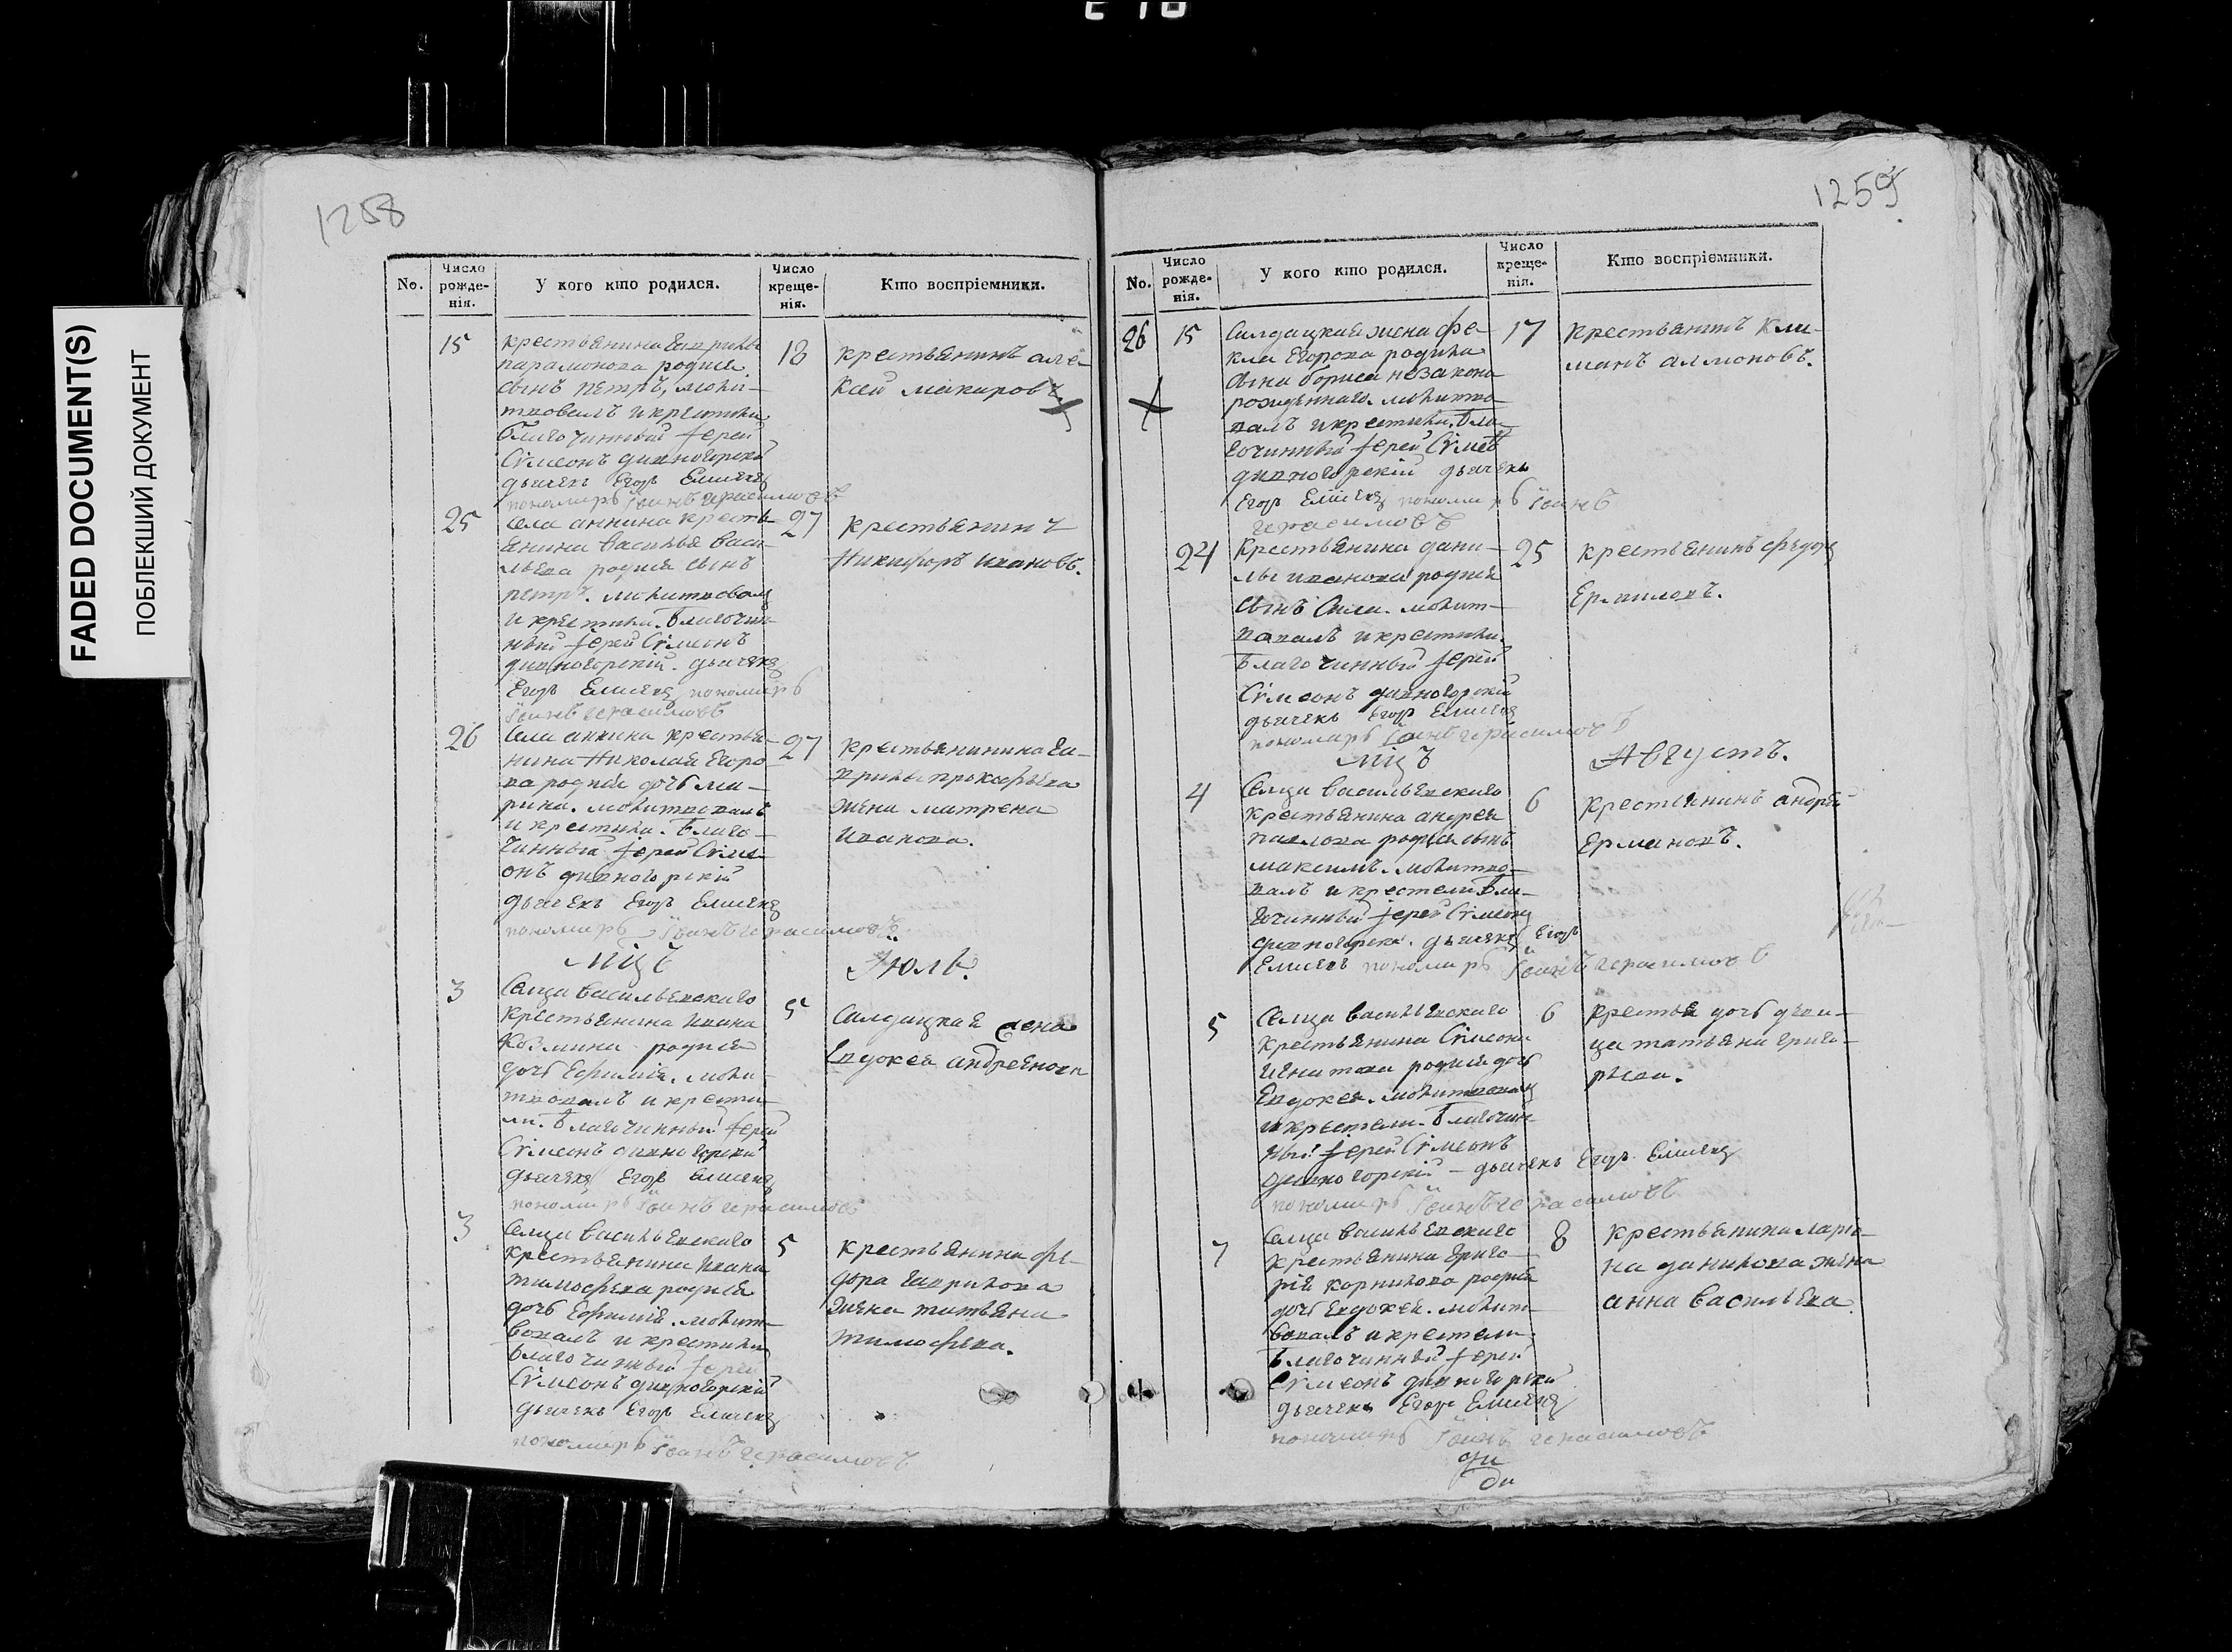 E 10
FADED DOCUMENT(S)
ПОБЛЕКШИЙ ДОКУМЕНТ
1258
No.
Число рожде-нія.
У кого кто родился.
Число креще-нія.
Кто воспріемники.
15
крестьянина Гаврилы
парамонова родися
сынъ петръ, моли-
твовалъ и крестили
благочинный іерей
Сѵмеонъ дивногорскій
дьячекъ Егоръ Елисеевъ
пономарь Іоаннъ герасимовъ
18
крестьянинъ але-
ксей макаровъ.
25
села аннина кресть-
янина василья васи-
льева родися сынъ
петръ. молитвовалъ
и крестили. благочин-
ный іерей Сѵмеонъ
дивногорскій. дьячекъ
Егоръ Елисеевъ пономарь
Іоаннъ герасимовъ
27
крестьянинъ
Никифоръ ивановъ.
26
села аннина крестья-
нина Николая Егоро-
ва родися дочь ма-
рина. молитвовалъ
и крестили. благо-
чинный іерей Сѵме-
онъ дивногорскій
дьячекъ Егоръ Елисеевъ
пономарь Іоаннъ герасимовъ
27
крестьянинина Га-
врилы прокофьева
жена матрена
иванова.
мцъ
Июль.
3
Селца васильевскаго
крестьянина ивана
козмина родися
дочь Ефимія. моли-
твовалъ и крести-
ли. благочинный іерей
Сѵмеонъ дивногорскій
дьячекъ Егоръ Елисеевъ
пономарь Іоаннъ герасимовъ
5
Салдацкая жена
Евдокея андреянова
3
Селца васильевскаго
крестьянина ивана
тимофеева родися
дочь Ефимія. молит-
вовалъ и крестили
благочинный іерей
Сѵмеонъ дивногорскій
дьячекъ Егоръ Елисеевъ
пономарь Іоаннъ герасимовъ
5
крестьянина фе-
дора гаврилова
жена татьяна
тимофеева.
1259
No.
Число рожде-нія.
У кого кто родился.
Число креще-нія.
Кто воспріемники.
26
15
Салдацкая жена фе-
кла Егорова родила
сына бориса незаконо
рожденнаго. молитво-
валъ и крестили. бла-
гочинный іерей Сѵмеонъ
дивногорскій дьячекъ
Егоръ Елисеевъ пономарь Іоаннъ
герасимовъ
17
крестьянинъ кли-
манъ
24
крестьянина дани-
лы иванова родися
сынъ Сила. молит-
вовалъ и крестили.
благочинный іерей
Сѵмеонъ дивногорскій
дьячекъ Егоръ Елисеевъ
пономарь Іоаннъ герасимовъ
25
крестьянинъ федоръ
Ермиловъ.
мцъ
Августъ.
4
Селца васильевскаго
крестьянина андрея
павлова родися сынъ
максимъ. молитво-
валъ и крестели бла-
гочинный іерей Сѵмеонъ
дивногорскі. дьячекъ Егоръ
Елисеевъ пономарь Іоаннъ герасимовъ
6
крестьянинъ андрей
Ермаковъ.
5
Селца васильевскаго
крестьянина Сѵмеона
игнатова родися дочь
Евдокея. молитвовалъ
и крестели. благочин-
ный іерей Сѵмеонъ
дивногорскій - дьячекъ Егоръ Елисеевъ
пономарь Іоаннъ герасимовъ
6
крестья дочь деви-
ца татьяна григо-
рьева.
7
Селца васильевскаго
крестьянина григо-
рія корнилова родися
дочь Евдокея. молит-
вовалъ и крестели.
благочинный іерей
Сѵмеонъ дивногорскій
дьячекъ Егоръ Елисеевъ
пономарь Іоаннъ герасимовъ
8
крестьянина ларіо-
на данилова жена
анна васильева.
ди